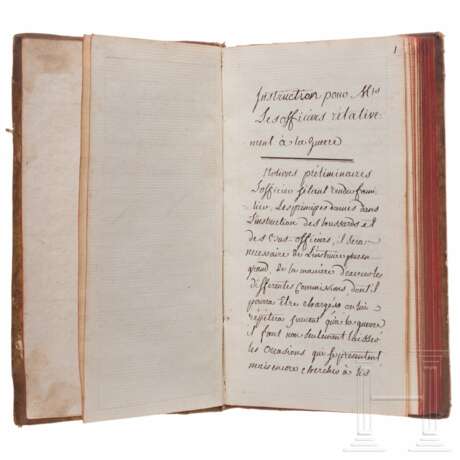 1
Instruction pour Mrs
Les officiers relative
ment à la Guerre
Notions préliminaires
L'officier s'étant rendu fami
lier, Les principes donnés dans
L'instruction des houssards et
des Sous-officiers, il sera
necessaire de L'instruire plus en
grand, de la maniere d'executer les
differentes Commissions dont il
pourra Être chargés on lui
repetera souvent qu'à la guerre
il faut non seulement laisser
les occasions qui se presentent
mais encore chercher à les